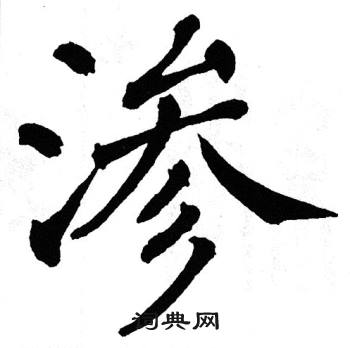 渗
词典网